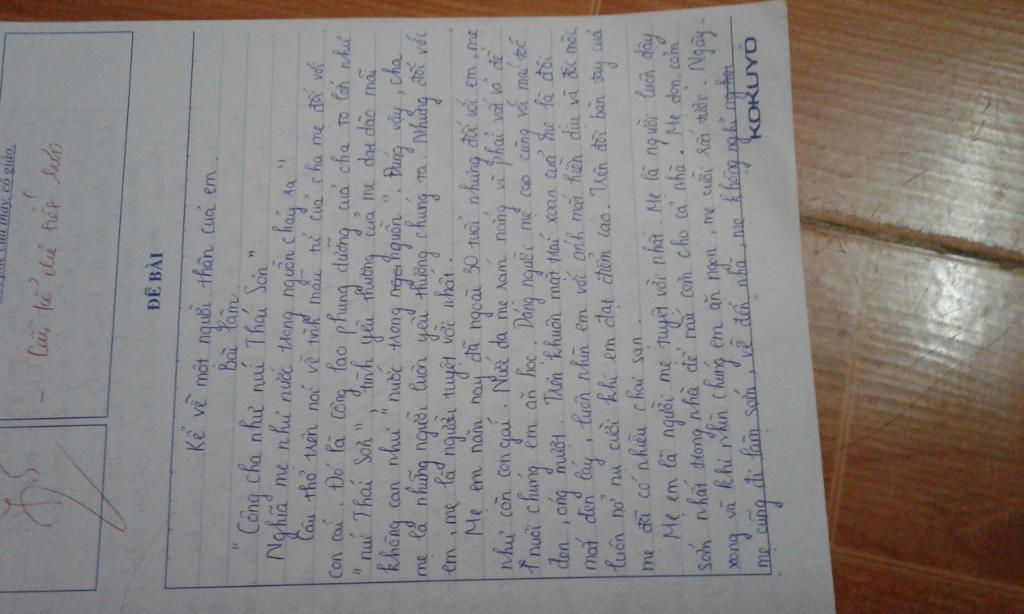 của thầy, cô giáo
- Cần kể chi tiết hơn
ĐỀ BÀI
Kể về một người thân của em.
Bài làm
"Công cha như núi Thái Sơn
Nghĩa mẹ như nước trong nguồn chảy ra"
Câu thơ trên nói về tình mẫu tử của cha mẹ đối với
con cái. Đó là công lao phụng dưỡng của cha to lớn như
"núi Thái Sơn", tình yêu thương của mẹ dạt dào mãi
không cạn như "nước trong nguồn". Đúng vậy, cha
mẹ là những người luôn yêu thương chúng ta. Nhưng đối với
em, mẹ là người tuyệt vời nhất.
Mẹ em năm nay đã ngoài 30 tuổi nhưng đối với em, mẹ
như còn con gái. Nước da mẹ xám nắng vì phải vất vả để
nuôi chúng em ăn học. Dáng người mẹ cao cùng với mái tóc
đen, óng mượt. Trên khuôn mặt thái xoan của mẹ là đôi
mắt đen láy, luôn nhìn em với ánh mắt hiền dịu và đôi môi
luôn nở nụ cười khi em đạt điểm cao. Trên đôi bàn tay của
mẹ đã có nhiều chai sạn.
Mẹ em là người mẹ tuyệt vời nhất. Mẹ là người luôn dậy
sớm nhất trong nhà để nấu cơm cho cả nhà. Mẹ dọn cơm
xong và khi nhìn chúng em ăn ngon, mẹ cười rất tươi. Ngày
mẹ cũng đi làm sớm, về đến nhà, mẹ không nghỉ
KOKUYO